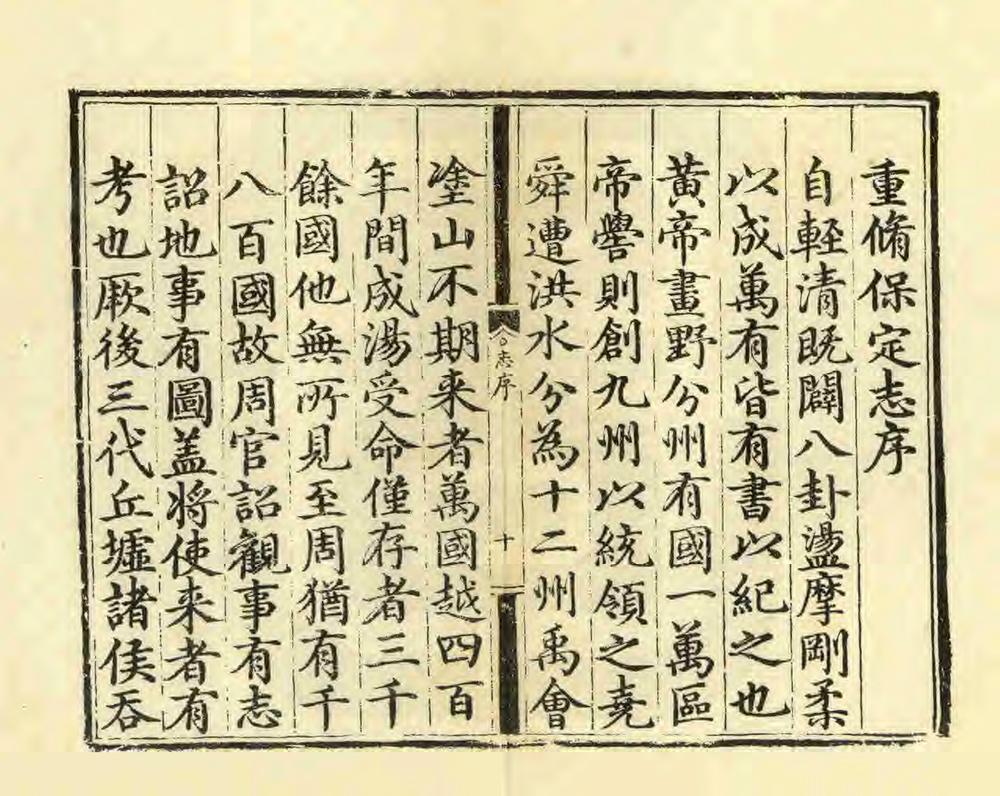 重脩保定志序
自輕清既闢八卦盪摩剛柔
以成萬有皆有書以紀之也
黃帝畫野分州有國一萬區
帝嚳則創九州以統領之堯
舜遭洪水分為十二州禹會
志序
十
塗山不期来者萬國越四百
年間成湯受命僅存者三千
餘國他無所見至周猶有千
八百國故周官詔觀事有志
詔地事有圖盖將使来者有
考也厥後三代丘墟諸侯吞